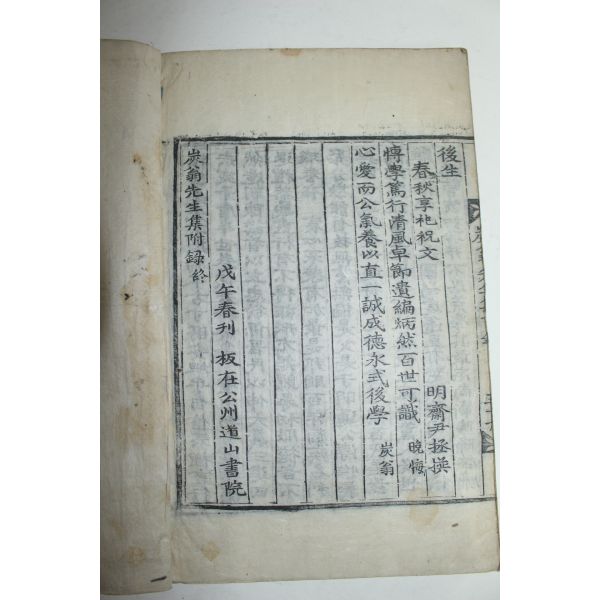 後生
春秋享祀祝文 明齋尹拯撰
慱學篤行清風卓節遺編炳然百世可識 晚悔
心愛而公氣養以直一誠成德永式後學 炭翁
戊午春刊 板在公州道山書院
炭翁先生集附錄終